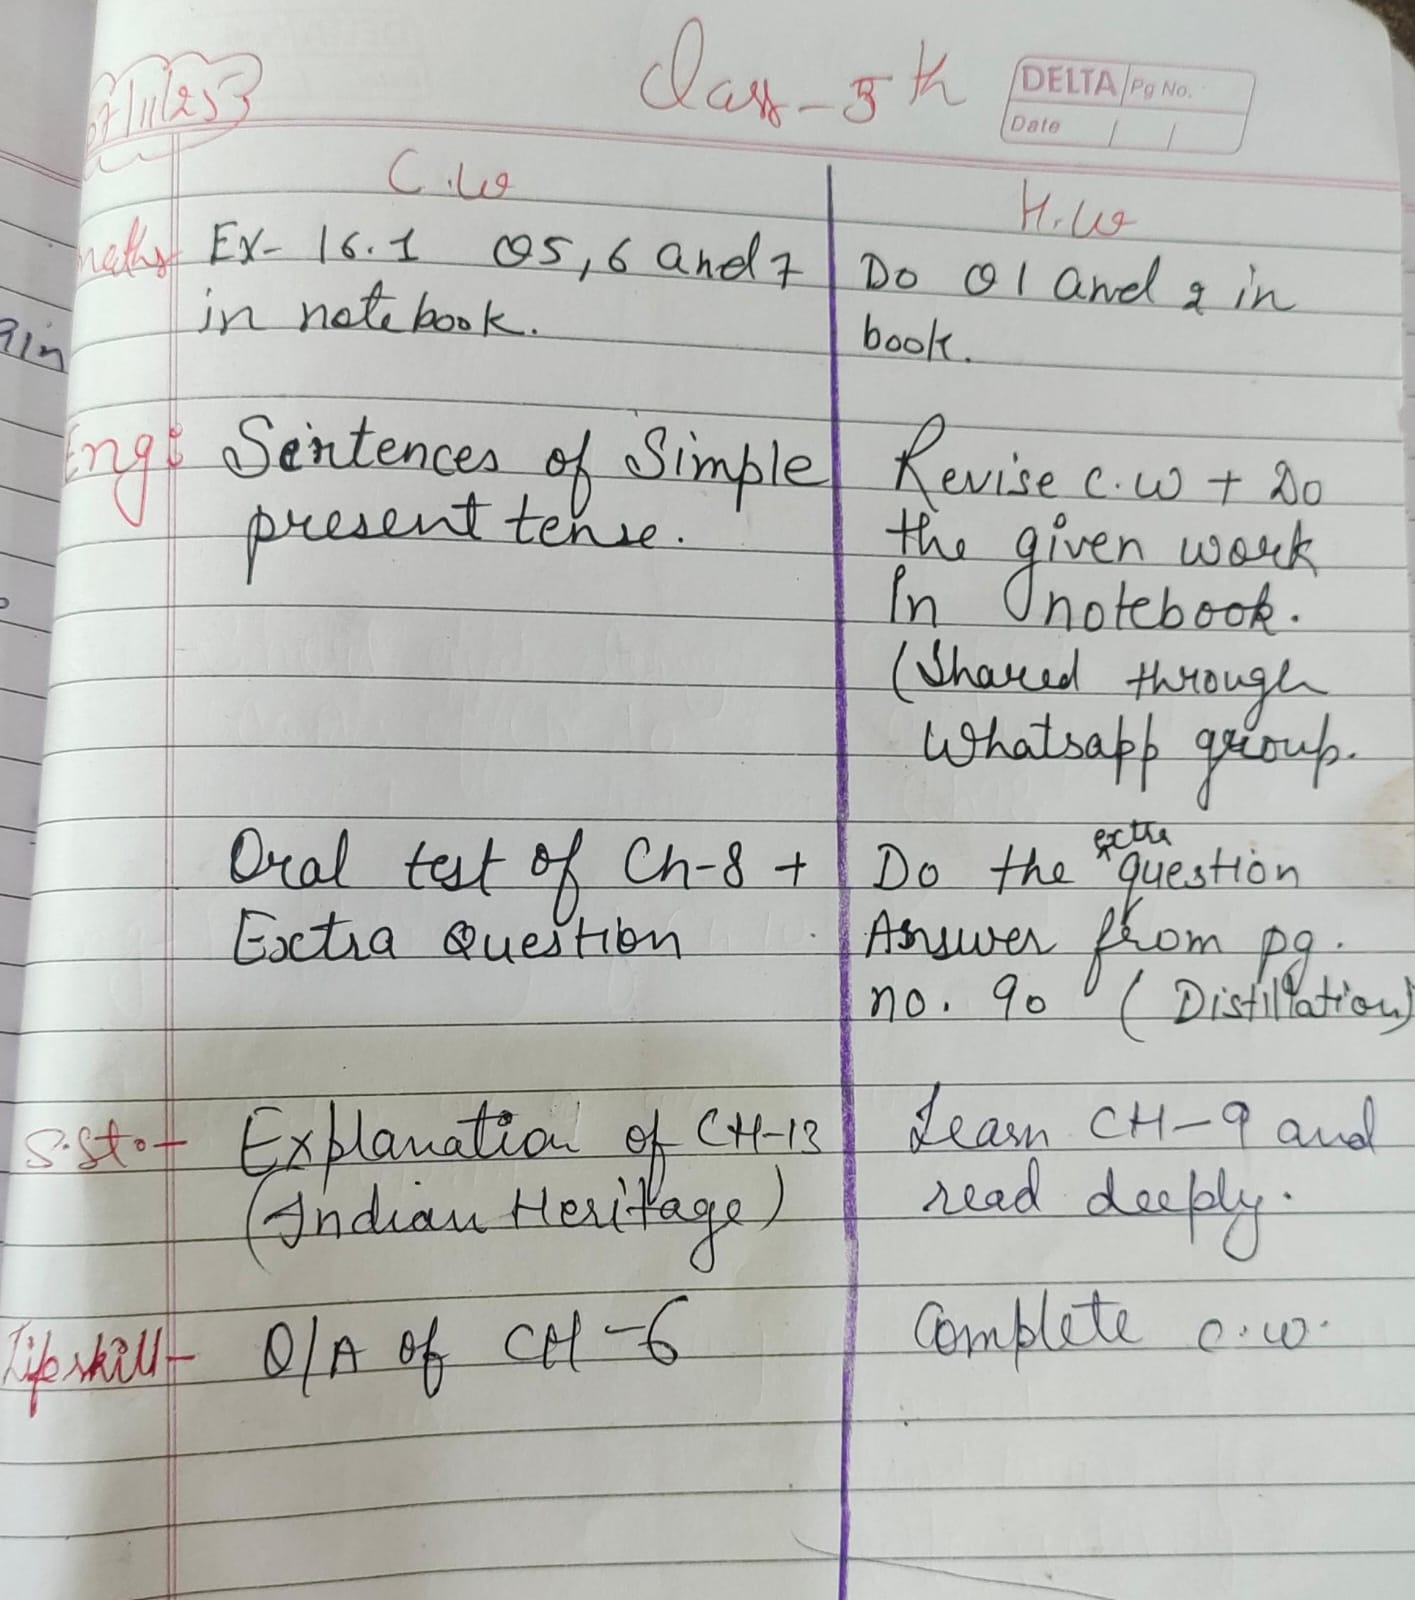 07/11/25
Class - 5th
DELTA Pg No.
Date
C.W
H.W
Maths
Ex- 16.1 Q5, 6 and 7
in notebook.
Do Q1 and 2 in
book.
Eng:
Sentences of Simple
present tense.
Revise C.W + Do
the given work
In notebook.
(Shared through
Whatsapp group.
Oral test of Ch-8 +
Extra Question
Do the extra question
Answer from pg.
no. 90 (Distillation)
S.St.-
Explanation of CH-13
(Indian Heritage)
Learn CH-9 and
read deeply.
Lifeskill-
Q/A of CH-6
Complete C.W.